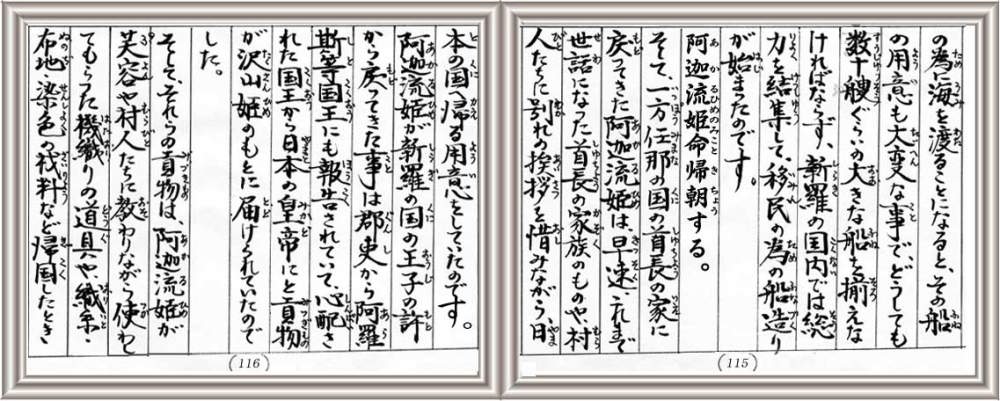 の為に海を渡ることになると、その船
の用意も大変な事で、どうしても
数十艘ぐらいの大きな船を揃えな
ければならず、新羅の国内では総
力を結集して、移民の為の船造り
が始まったのです。
阿迦流姫命帰朝する。
そして、一方任那の国の首長の家に
戻ってきた阿迦流姫は、早速これまで
世話になった首長の家族のものや、村
人たちに別れの挨拶を惜みながら、日
(115)
本の国へ帰る用意をしていたのです。
阿迦流姫が新羅の国の王子の許
から戻ってきた事は郡吏から阿羅
斯等国王にも報告されていて、心配さ
れた国王から日本の皇帝にと貢物
が沢山姫のもとに届けられていたので
した。
そして、それらの貢物は、阿迦流姫が
芙容や村人たちに教わりながら使わし
てもらった機織りの道具や、織糸・
布地・染色の材料など帰国したとき
(116)